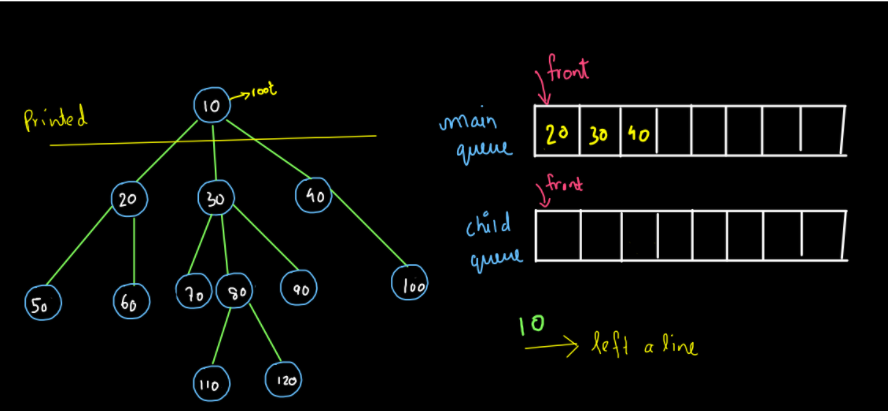 10
root
Printed
20
30
40
50
60
70
80
90
100
110
120
front
main
queue
20 30 40
front
child
queue
10
left a line